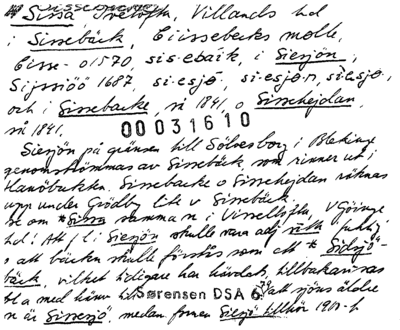 Sissa, Ivetofta, Villands hd
i Sissebäck, Eissebecks molle,
Eisse- 01570, sis-ebäik, i Siesjön,
Sijssiöö 1687, si-esjø, si-esjø-n, si-esjø-
och i Sissebacke, vi 1841, o Sissehejdan,
vi 1841.
00031610
Siesjön på gränsen till Sölvesborg i Blekinge
genomströmmas av Sissebäck, som rinner ut i
Hanöbukten. Sissebacke o Sissehejdan räknas
upp under Grödby
Sissebäck.
om *Sissa samma n i Visseltofta, V Göinge
hd: Att i Siesjön skulle vara adj
o att bäcken skulle förstås som ett * Sidsjö-
bäck, vilket tidigare har hävdats, tillbakavisas
bl a med
Sørensen DSA 6, att sjöns äldre
n är Sissesjö, medan formen Siesjö tillhör 1900-t.